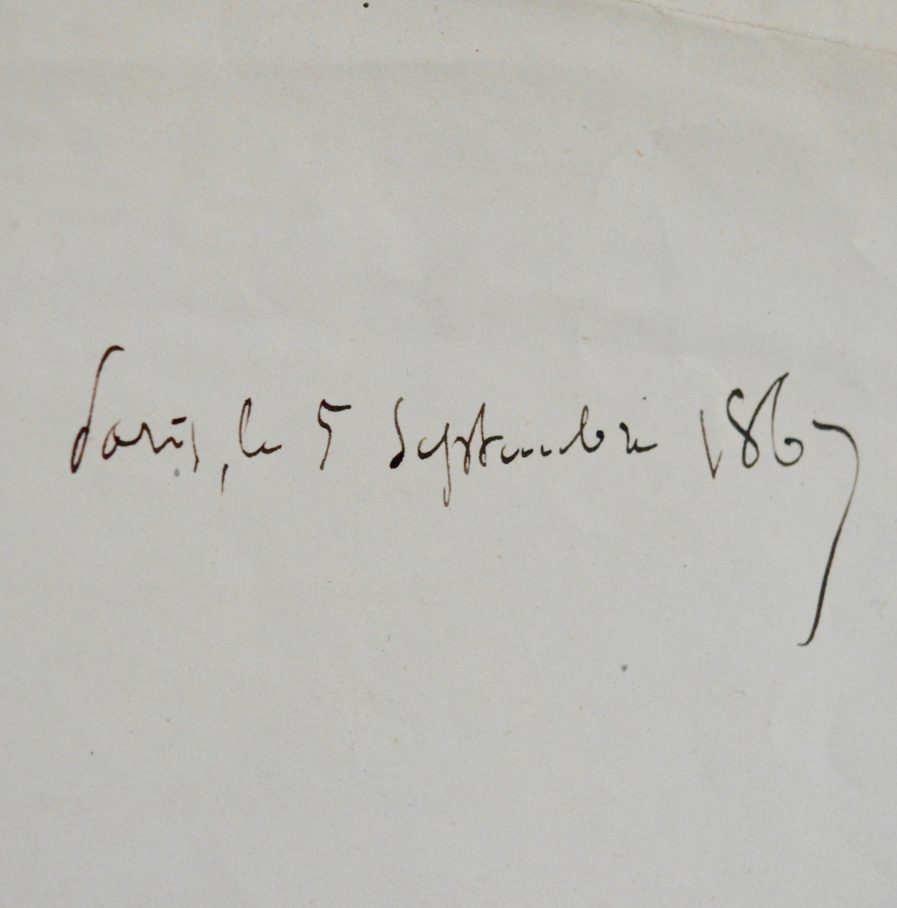 Paris, le 5 Septembre 1867